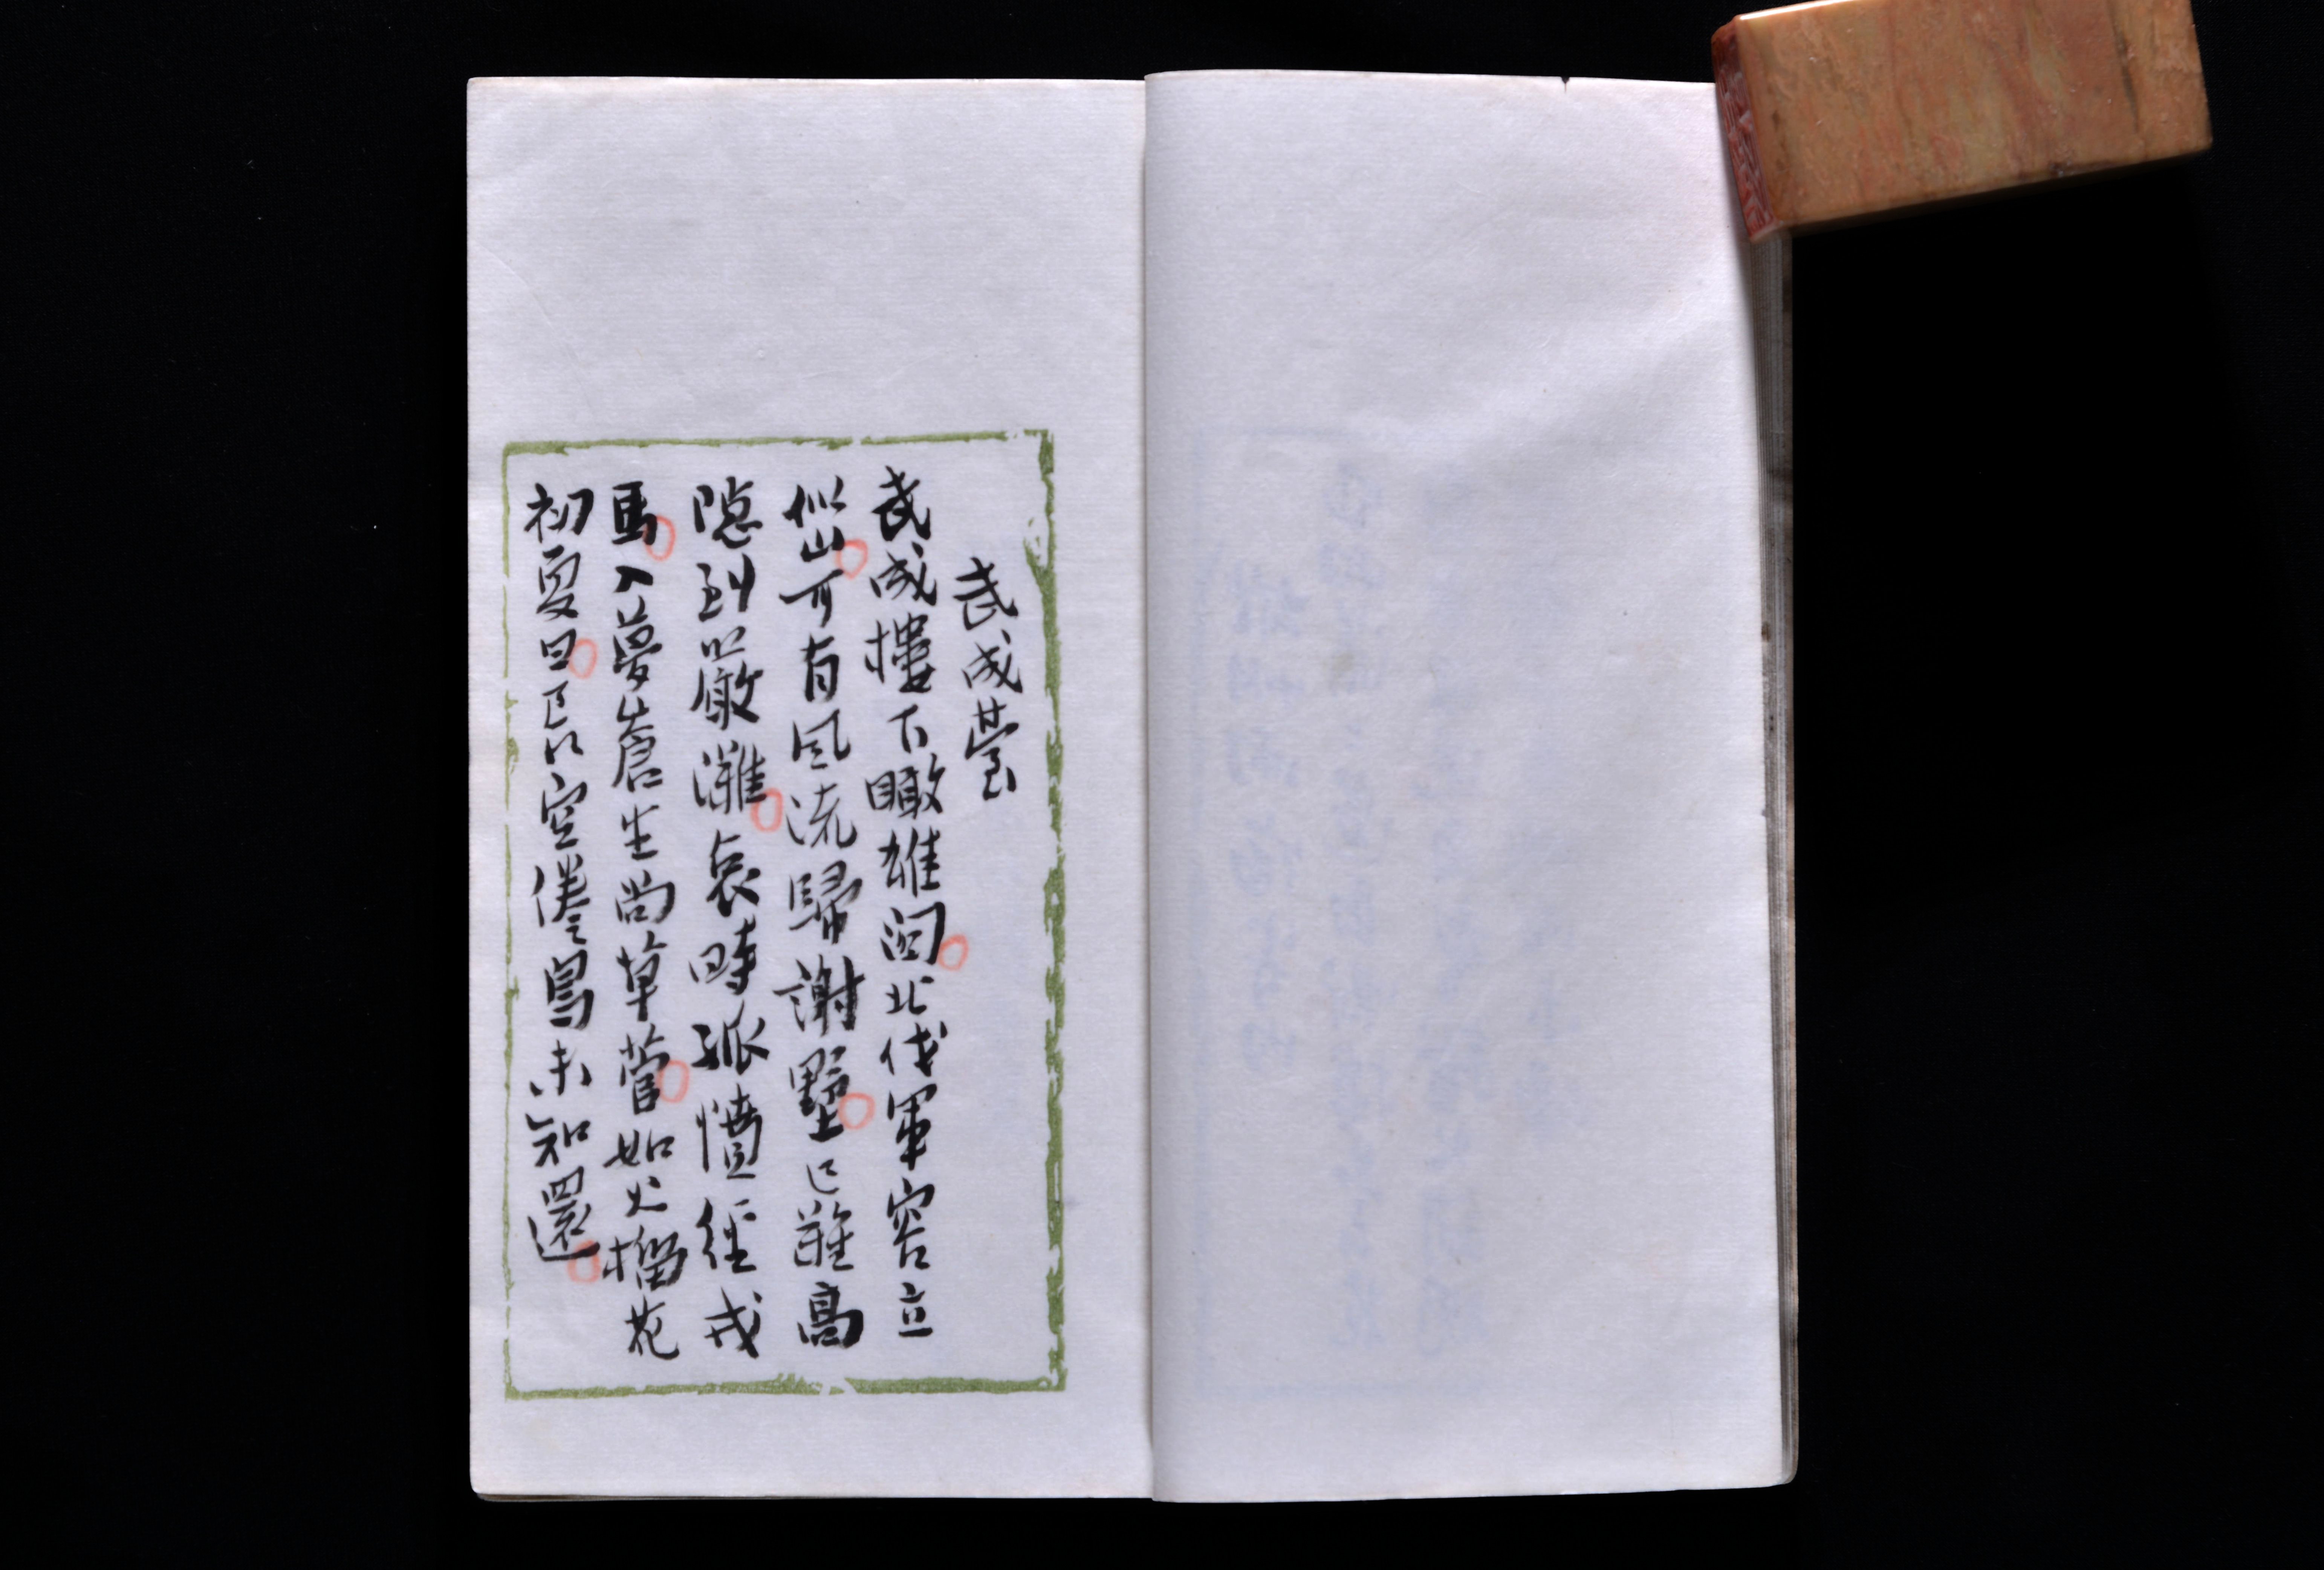 武成營
武成樓下瞰雄關北伐軍容立
似山可有風流歸謝墅已難高
隱到嚴灘哀時孤憤經戎
馬入夢蒼生尚草菅如火榴花
初夏日長空倦鳥未知還